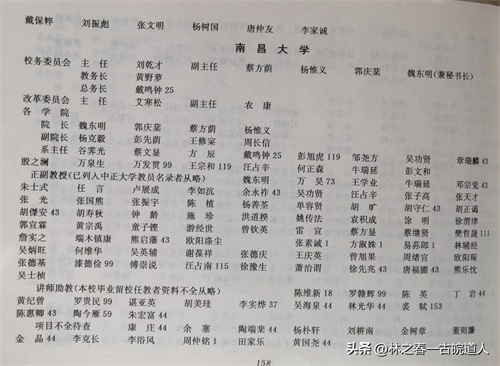 戴保粹 刘振彪 张文明 杨树国 唐仲友 李家诚
南昌大学
校务委员会 主任 刘乾才 副主任 蔡方荫 杨惟义 郭庆棻 魏东明(兼秘书长)
教务长 黄野萝
总务长 戴鸣钟 25
改革委员会 主任 艾寒松 副主任 农康
各学院
院长 魏东明 郭庆棻 蔡方荫 杨惟义
副院长 杨克毅 彭先荫 王修寀 周长信
系主任 谷霁光 蔡文显 方辰 戴鸣钟 25 彭旭虎 119 邹尧方 吴功贤 章瑞麟 43
殷之澜 万泉生 万发贯 99 王宗和 119 汪占辛 何正森 牛瑞延 彭文和
正副教授(已列入中正大学教员名录者从略) 魏东明 万昊 73 王学业 牛瑞延 邓宗觉 43
朱士式 任言 卢展成 李如沆 余永祚 43 吴功贤 汪占辛 张子高 张天才
张光 张国焦 张振宇 陈植 杨善荃 单容贤 胡旷 胡守仁 43 胡正谒
胡傑安 43 胡寿秋 钟龄 施珍 洪道揆 姚传法 袁积成 涂明 徐渭津
郭宣霖 黄宗禹 童子铿 游经世 曾钦英 雷宣 蔡方显 蔡燧贤 樊哲晟 111
詹实之 端木镇康 熊启藩 43 欧阳涤尘 张素诚 1 方淑姝 1 易荪郎 1 林辅经
吴炳旺 何维华 吴英辅 谢葆祥 张德庆 王庆英 曾旭果 周绪宣 欧阳琛
张德基 漆德俭 99 傅崇说 汪占南 115 徐豫生 萧治谓 徐先兆 43 唐福圃 43 熊乐忱
吴士桢
讲师助教(本校毕业留校任教者资料不全从略) 陈维新 18 罗赣辉 99 陈英 丁岩 44
黄纪曾 罗贵民 99 谌亚英 胡美琏 李实烨 37 吴海泉 44 林光华 44 裘斌 119
陈惠卿 43 陶今雁 59 朱宏富 44
项目不全待查 康庄 44 余塞 陶端棻 44 杨朴轩 刘耕南 金树章 董则濂
金晶 44 李克长 李浴风 周仲铭 1 田家乐 黄国尧 44
158
头条 @林之春一古皖道人